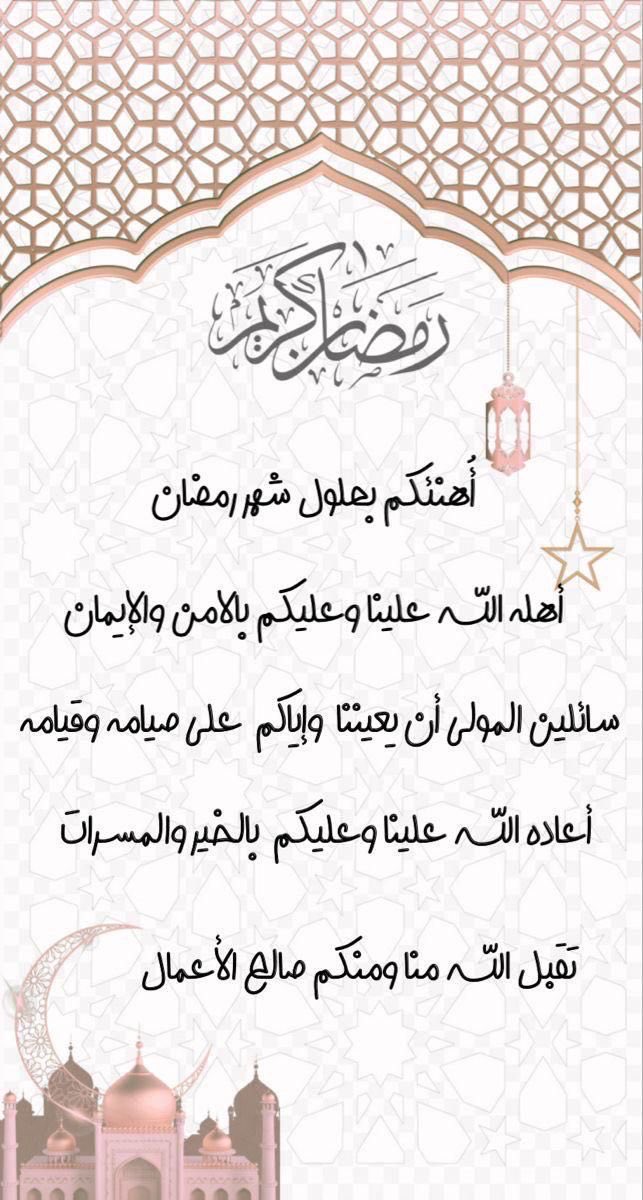 رمضان كريم
أُهنئكم بحلول شهر رمضان
أهله اللّه علينا وعليكم بالامن والإيمان
سائلين المولى أن يعيننا وإياكم على صيامه وقيامه
أعاده اللّه علينا وعليكم بالخير والمسرات
تقبل اللّه منا ومنكم صالح الأعمال